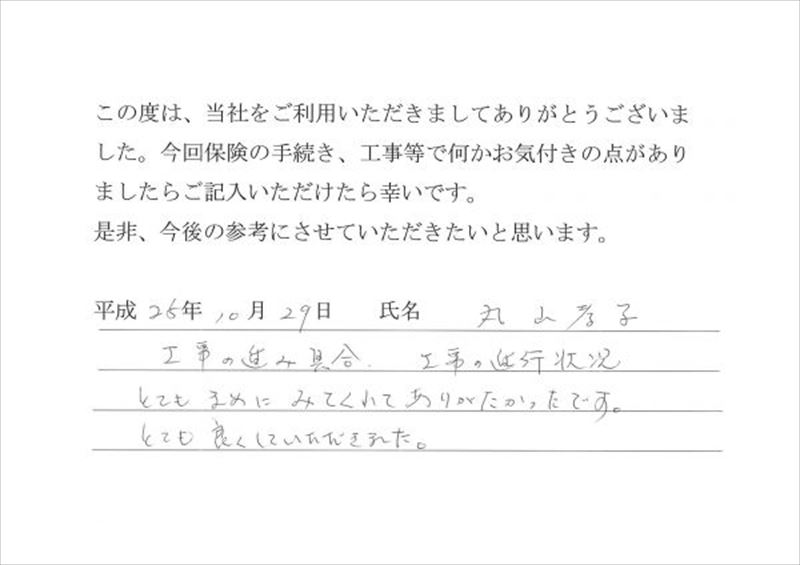 この度は、当社をご利用いただきましてありがとうございま
した。今回保険の手続き、工事等で何かお気付きの点があり
ましたらご記入いただけたら幸いです。
是非、今後の参考にさせていただきたいと思います。
平成 25年 10月 29日 氏名 丸山孝子
工事の進み具合、工事の進行状況
とてもまめに みてくれて ありがたかったです。
とても良くしていただきました。